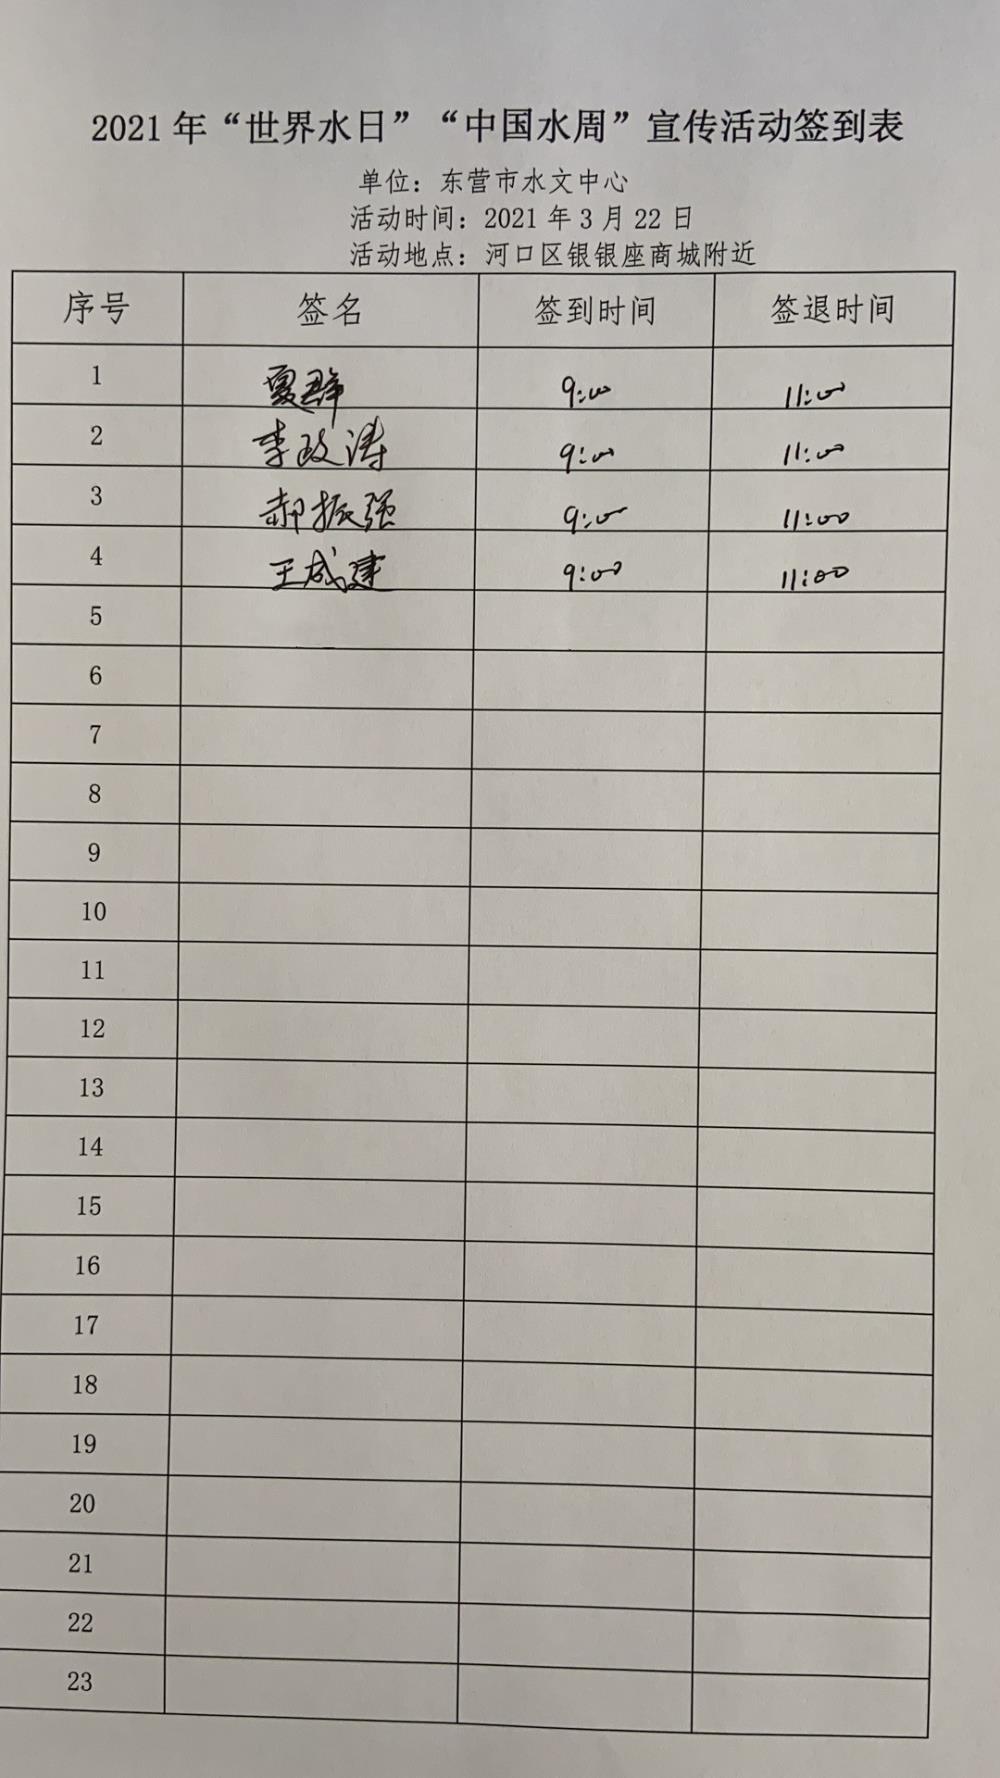 2021年“世界水日”“中国水周”宣传活动签到表
单位：东营市水文中心
活动时间：2021年3月22日
活动地点：河口区银银座商城附近
序号 签名 签到时间 签退时间
1 夏群 9:00 11:00
2 李政涛 9:00 11:00
3 郝振强 9:00 11:00
4 王成建 9:00 11:00
5
6
7
8
9
10
11
12
13
14
15
16
17
18
19
20
21
22
23